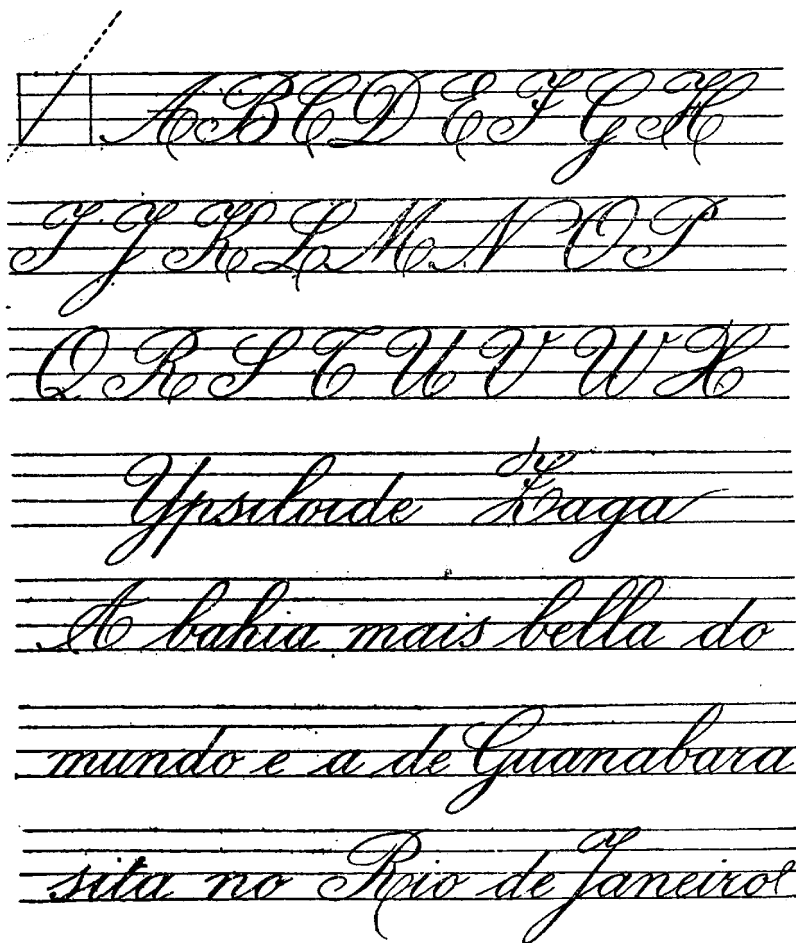 A B C D E F G H
I J K L M N O P
Q R S T U V W X
Ypsiloide Zaga
A bahia mais bella do
mundo e a de Guanabara
sita no Rio de Janeiro